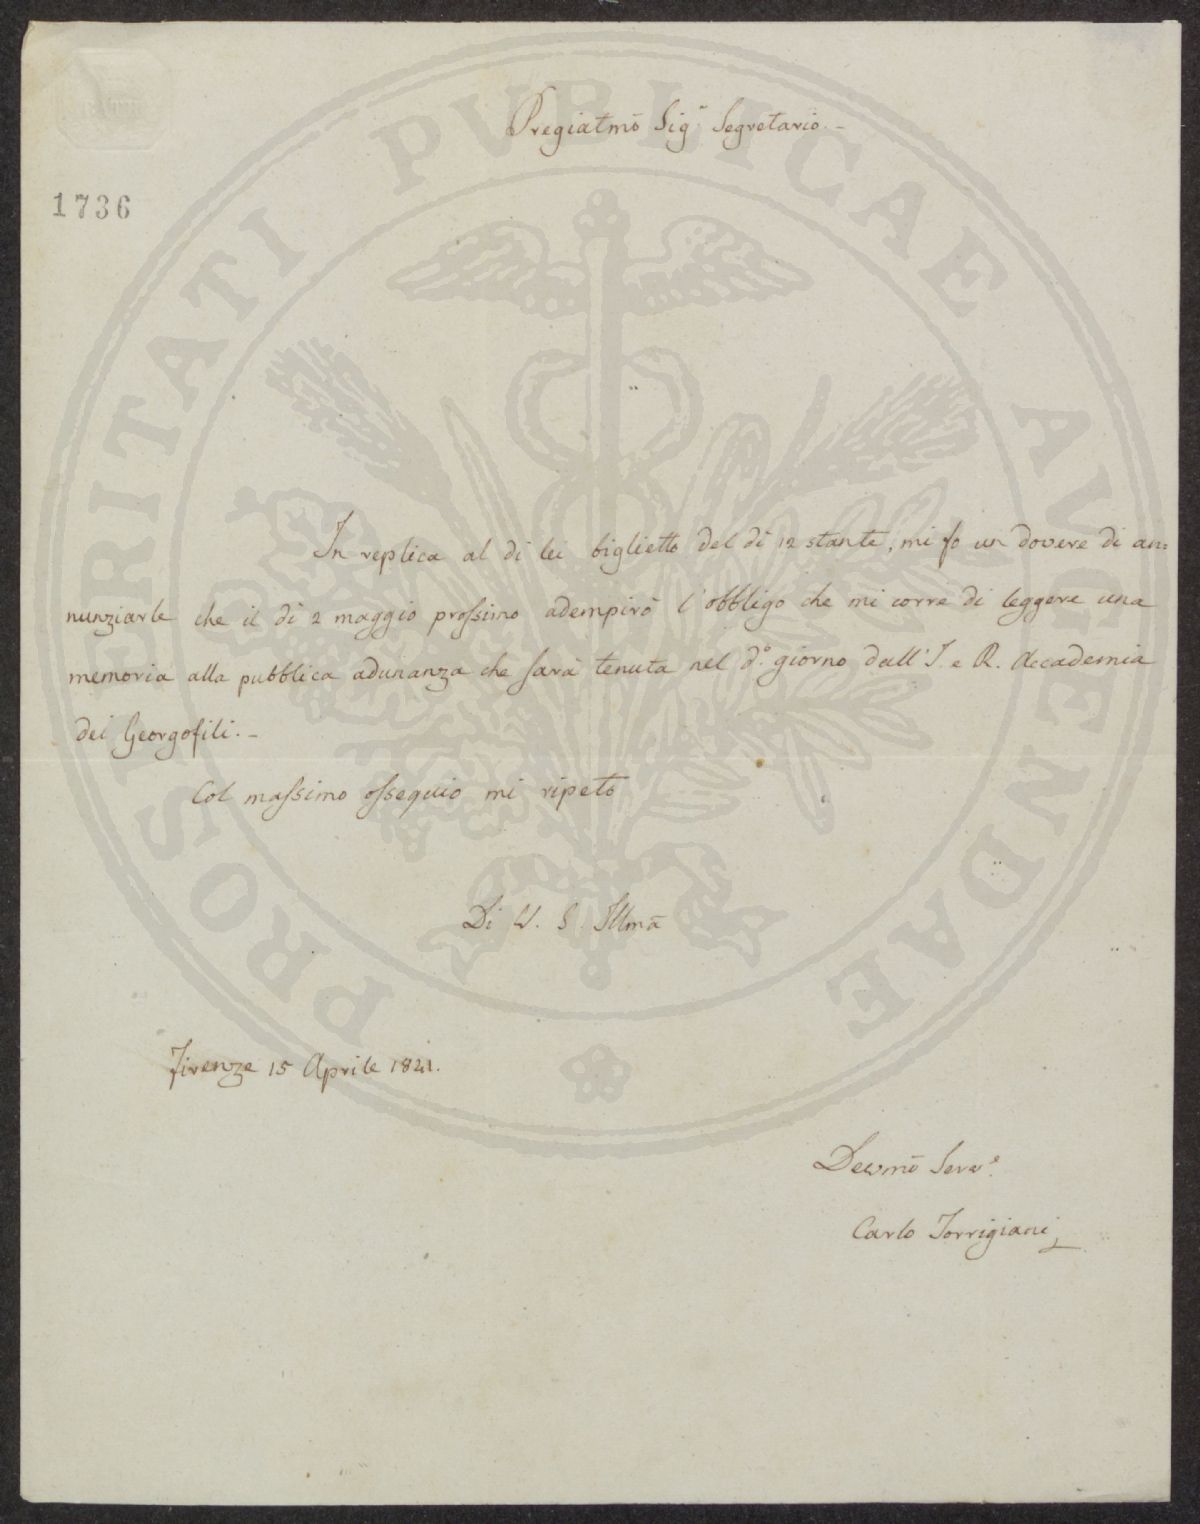 Pregiatmõ Sigʳ Segretario. -
1736
In replica al di lei biglietto del dì 12 stante, mi fo un dovere di an=
nunziarle che il dì 2 maggio prossimo adempirò l'obbligo che mi corre di leggere una
memoria alla pubblica adunanza che sarà tenuta nel dº. giorno dall'I. e R. Accademia
dei Georgofili. -
Col massimo ossequio mi ripeto
Di V. S. Illmã
Firenze 15 Aprile 1841.
Devmõ Servᵉ.
Carlo Torrigiani
PROSPERITATI PVBLICAE AVGENDAE